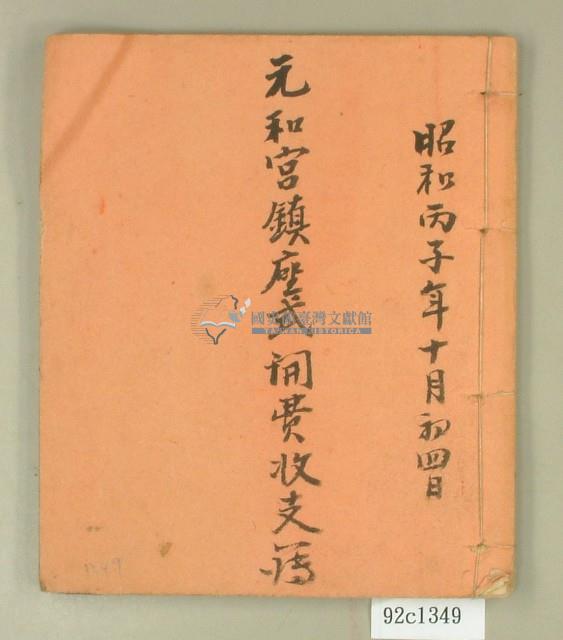 昭和丙子年十月初四日
元和宮鎮座式開費收支簿
國史館臺灣文獻館
TAIWAN HISTORICA
1349
92c1349